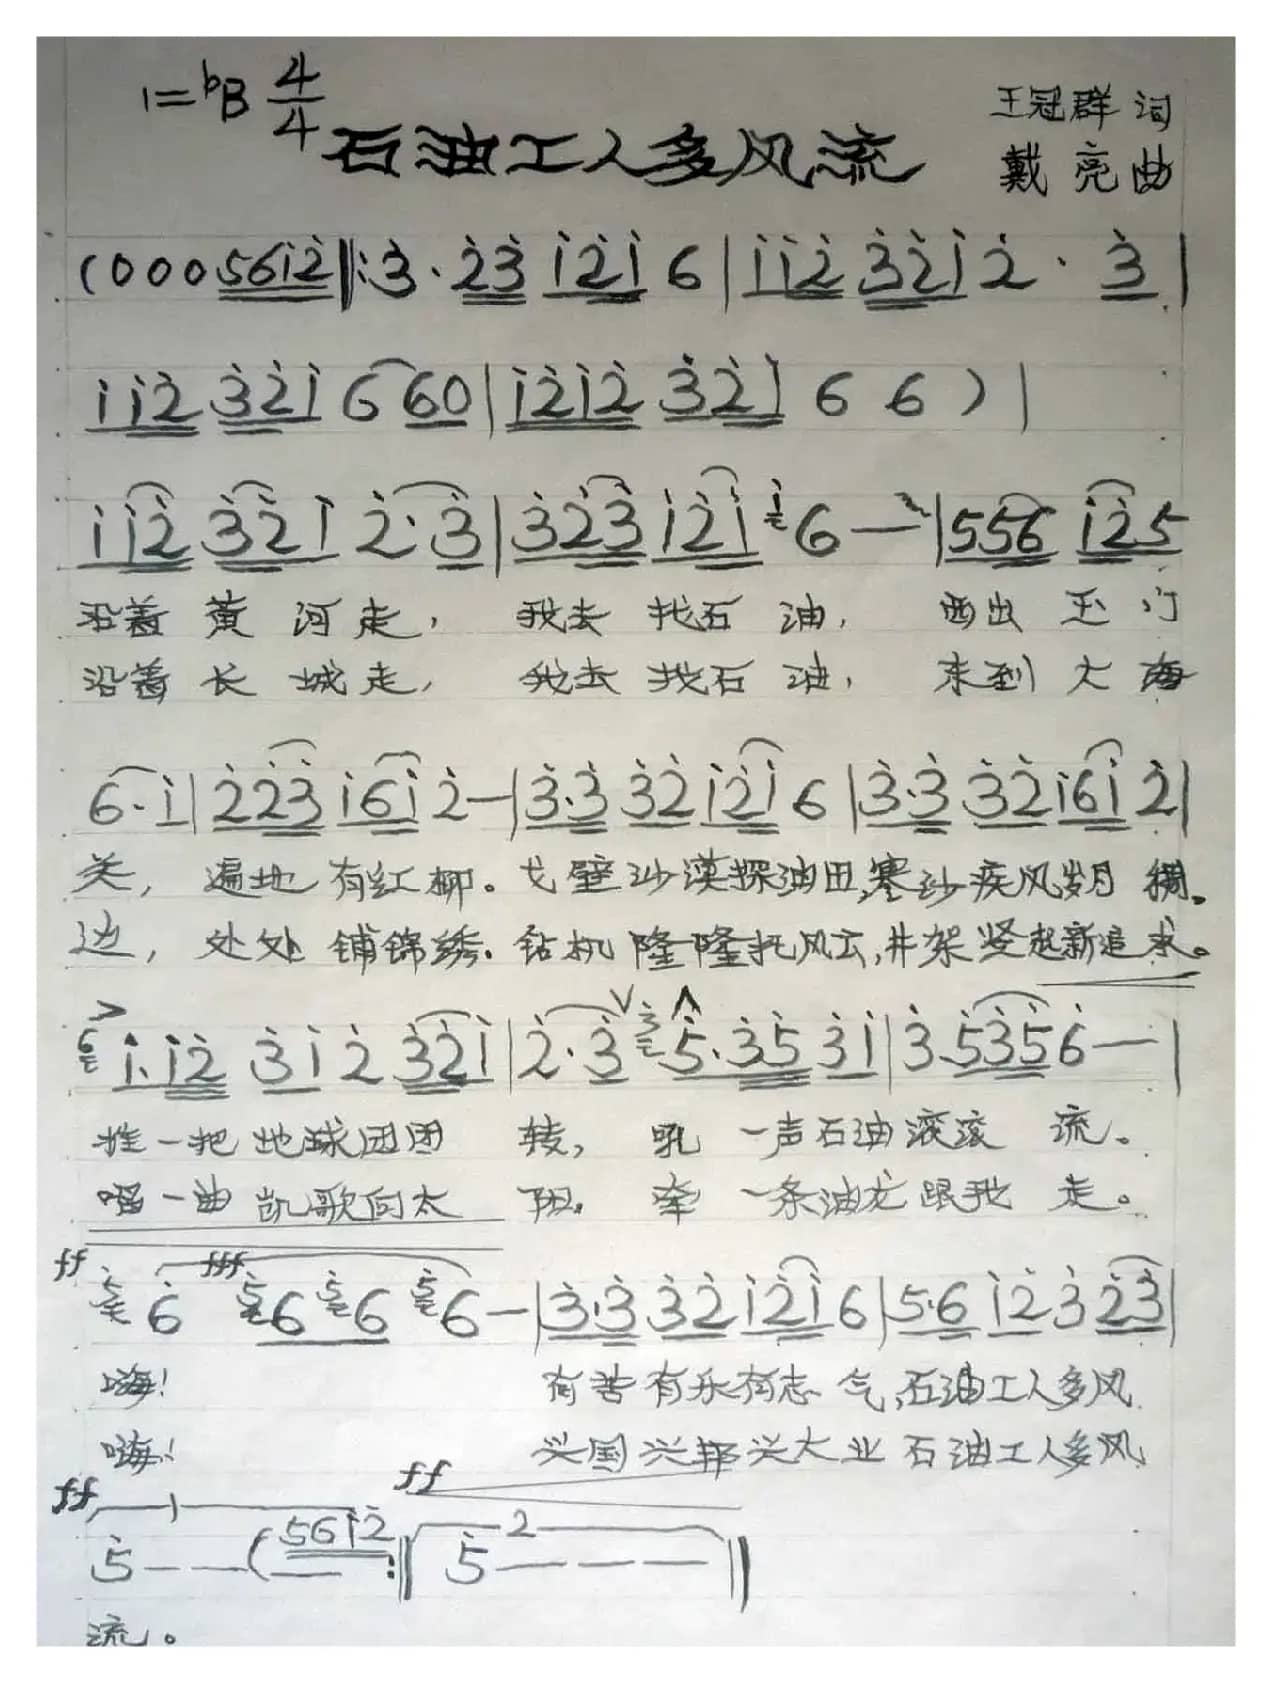 1=♭B 4/4
石油工人多风流
王冠群 词
戴亮曲
(0 0 0 561̇2̇ ‖: 3̇· 2̇3̇ 1̇2̇1̇ 6 | 1̇1̇2̇ 3̇2̇1̇ 2̇· 3̇ |
1̇1̇2̇ 3̇2̇1̇ 6 60 | 1̇2̇1̇2̇ 3̇2̇1̇ 6 6 ) |
1̇1̇2̇ 3̇2̇1̇ 2̇· 3̇ | 3̇2̇3̇ 1̇2̇1̇ 1̇6 — | 556 1̇2̇5
沿着 黄 河 走, 我去 找石 油, 西出 玉 门
沿着 长 城 走, 我去 找石 油, 来到 大 海
6· 1̇ | 2̇2̇3̇ 1̇61̇ 2̇ — | 3̇·3̇ 3̇2̇ 1̇2̇1̇ 6 | 3̇·3̇ 3̇2̇ 1̇61̇ 2̇ |
关, 遍地 有红柳。戈壁沙漠探油田,寒沙疾风岁月稠。
边, 处处 铺锦绣。钻机隆隆托风云,井架竖起新追求。
> 6 1̇·1̇2̇ 3̇1̇ 2̇ 3̇2̇1̇ | 2̇·3̇ V 3̇ 5̇·3̇5̇ 3̇1̇ | 3̇·5̇3̇5̇ 6̇ — |
推一把 地球团团 转, 吼 一声石油滚滚 流。
唱一曲 凯歌向太 阳。 牵 一条油龙跟我 走。
ff fff
5̇ 6̇ 5̇6 5̇6 5̇6 — | 3̇·3̇ 3̇2̇ 1̇2̇1̇ 6 | 5·6 1̇2̇ 3̇ 2̇3̇ |
嗨! 有苦有乐有志气,石油工人多风
嗨! 兴国兴邦兴大业 石油工人多风
ff ff
1 2
5̇ — — ( 561̇2̇ :‖ 5̇ — — — ‖
流。